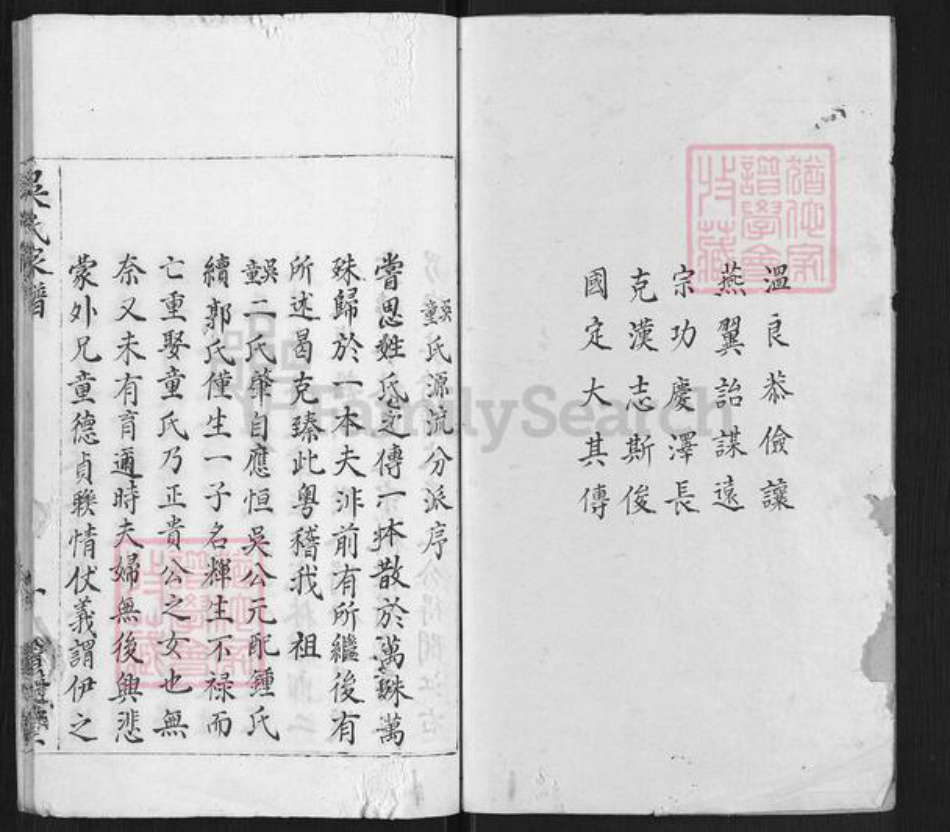 溫良恭儉讓
燕翼詒謀遠
宗功慶澤長
克漢志斯俊
國定大其傳
吳童氏源流分派序
嘗思姓氏之傳一本散於萬殊萬
殊歸於一本夫非前有所繼後有
所述曷克臻此粵稽我祖
吳童二氏肇自應恒吳公元配鍾氏
續郭氏僅生一子名輝生不祿而
亡重娶童氏乃正貴公之女也無
奈又未有育邇時夫婦無後興悲
蒙外兄童德貞聯情伏義謂伊之
吳氏家譜
FamilySearch